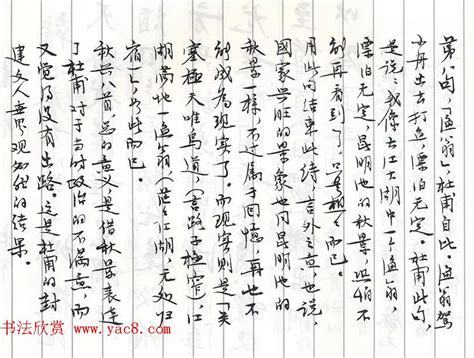 第八句，「渔翁」，杜甫自比。渔翁驾
小舟出去打渔，漂泊无定。杜甫此句，
是说：我像在江上湖中一个渔翁，
漂泊无定，昆明池的秋景，恐怕不
再看到了，只是想々而已。
用此句结束此诗，言外之意也说，
国家兴旺的景象也同昆明池的
秋景一样，不过属于回忆，再也不
能成为现实了。而现实则是「关
塞极天唯鸟道，（言路子极窄）江
湖满地一渔翁，（茫々江湖，无处归
宿）」，如此而已。
秋兴八首，总的意义是借秋景表达
了杜甫对于当时政治的不满意，而
又觉得没有出路。这是杜甫的封
建文人世界观的结果。
书法欣赏 www.yac8.com